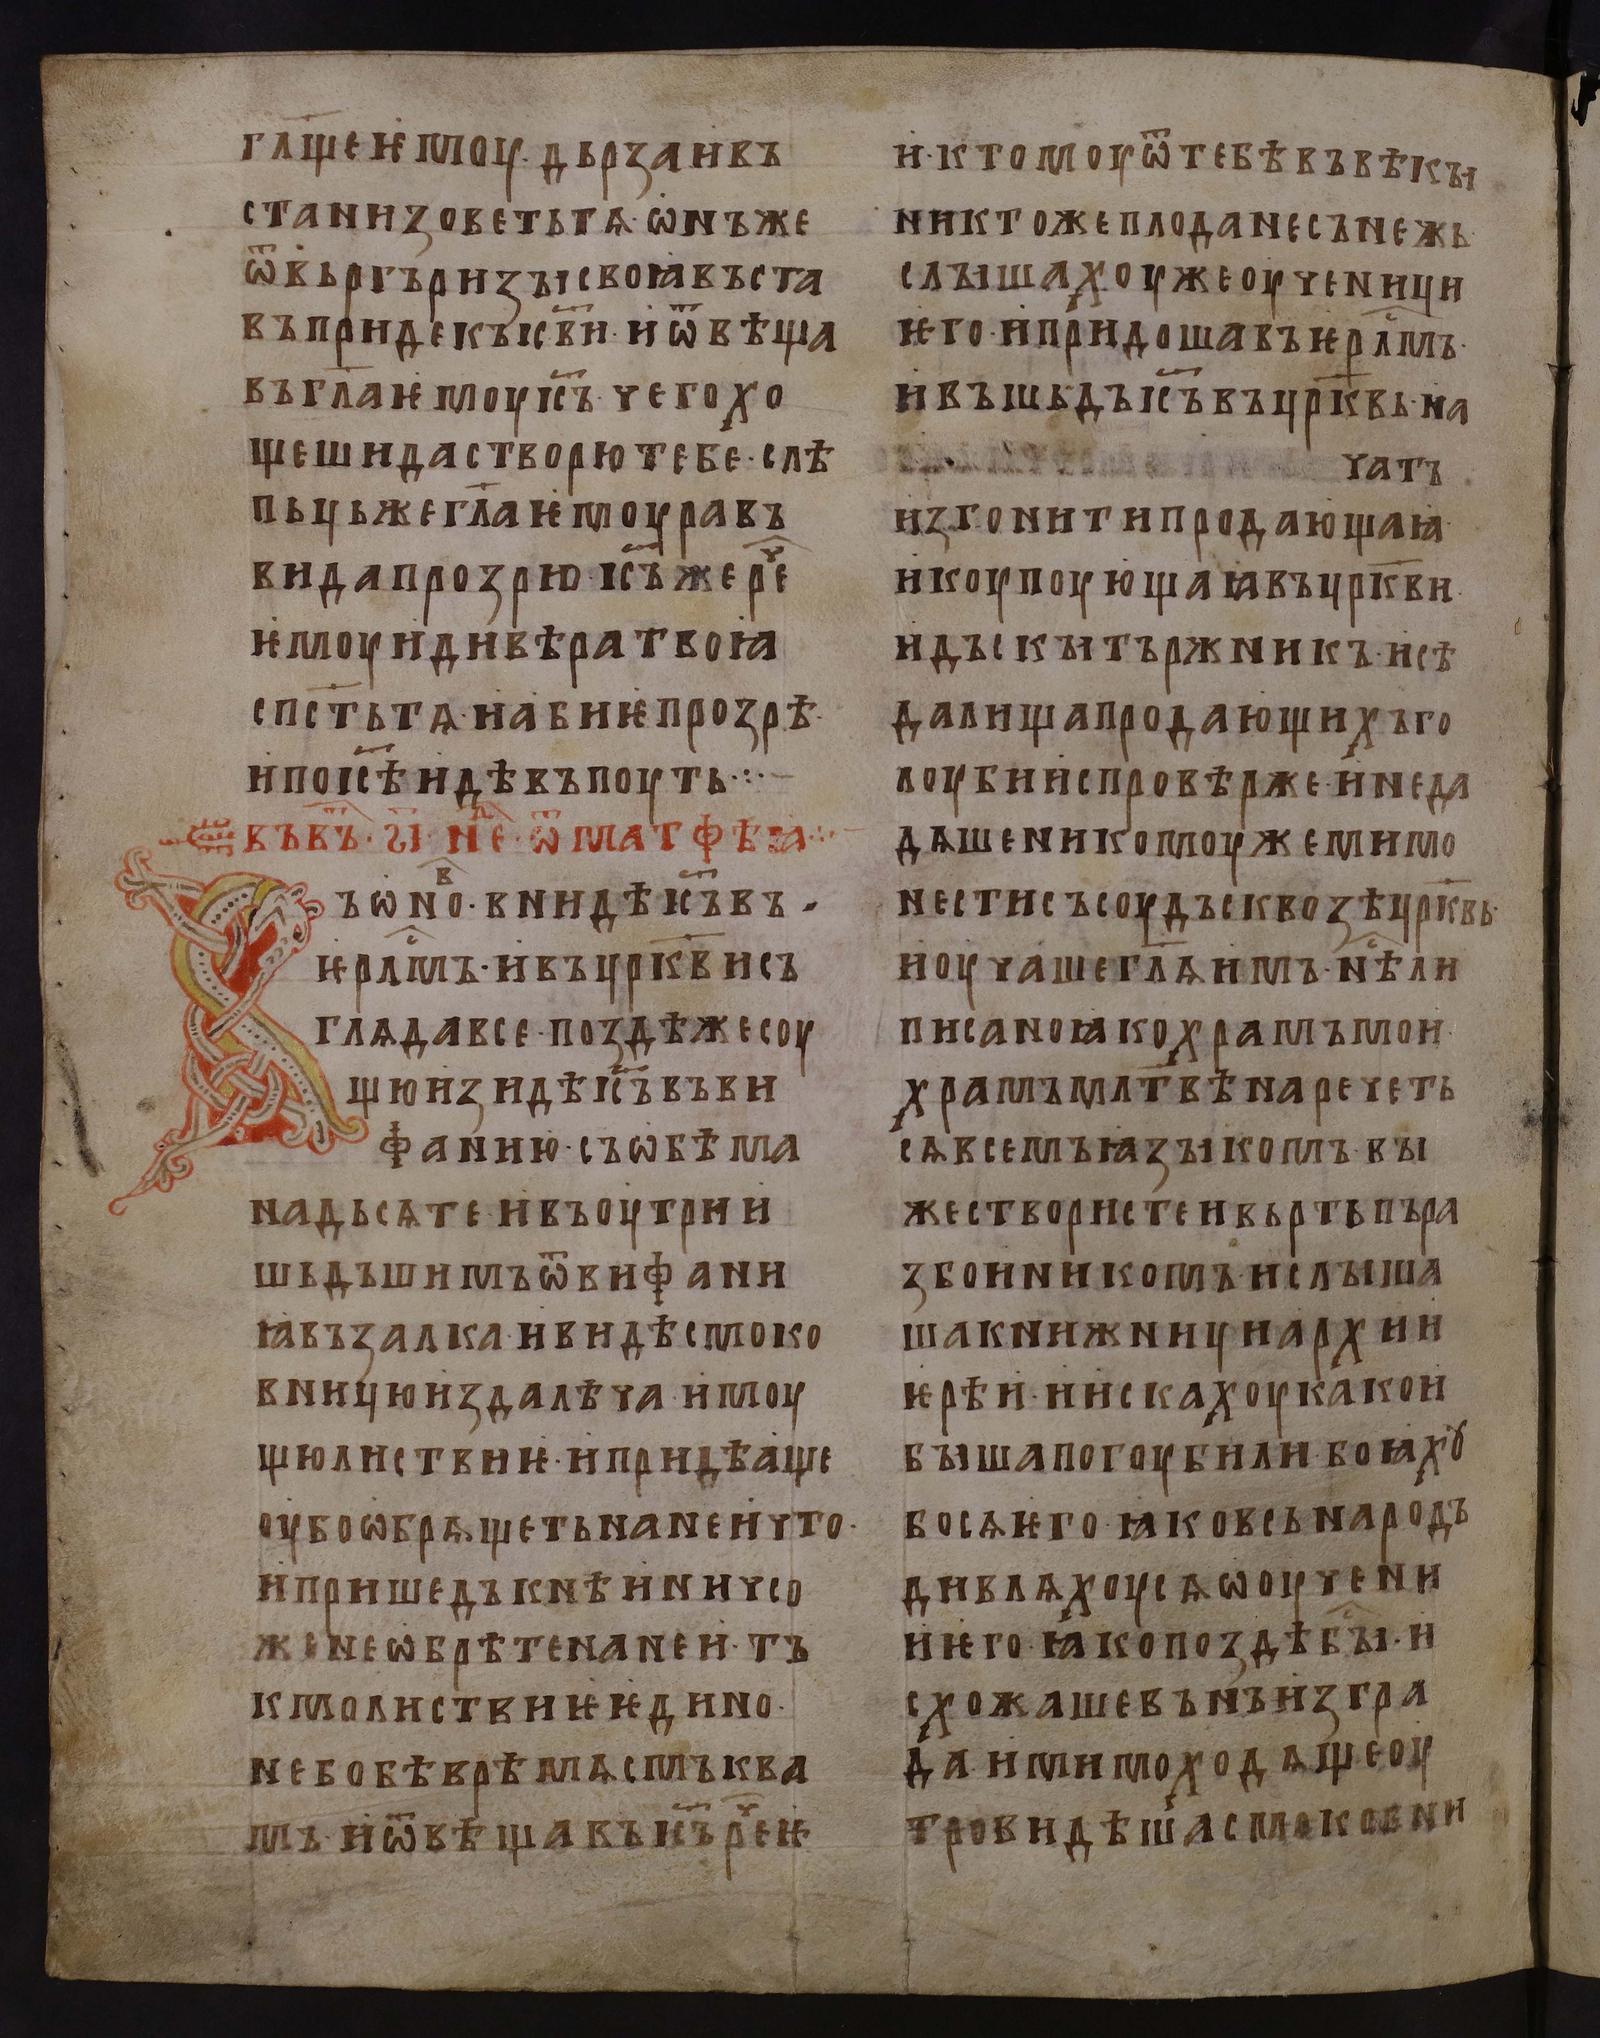 гл҃ще ѥмоу· дьрзаи въ
стани зоветь тѧ· ѡнъ же
ѿвьргъ ризы своꙗ въста
въ приде къ іс҃ви· и ѿвѣща
въ гл҃а ѥмоу іс҃ъ· чего хо
щеши да створю тебе· слѣ
пьць же гл҃а ѥмоу равъ
ви да прозрю· іс҃ъ же реч҇
ѥмоу иди вѣра твоꙗ
сп҃сть тѧ· и абиѥ прозрѣ·
и по іс҃ѣ иде въ поуть·:·
въ в҃ъ· ѕ҃і· нед҇ ѿ матфѣꙗ·:·
Въ ѡно в҇· вниде іс҃ъ въ
ѥрл҇мъ· и въ цр҃кви съ
глѧда все· позде же соу
щю изиде іс҃ъ въ ви
фанию· съ ѡбѣма
надьсѧте· и въ оутрии
шьдъшимъ ѿ вифани
ꙗ възалка· и виде смоко
вницю издалѣча имоу
щю листвиѥ· и приде аще
оубо ѡбрѧщеть на неи что·
и пришедъ к нѣи ничсо
же не ѡбрѣте на неи· тъ
кмо листвиѥ ѥдино·
не бо бѣ врѣмѧ смъква
мъ· и ѿвѣщавъ іс҃ъ реч҇ ѥ
и· к томоу ѿ тебѣ въ вѣкы
никтоже плода не сънежь·
слышахоу же оученици
ѥго· и придоша въ ѥрл҇мъ·
и въшьдъ іс҃ъ въ цр҃квь· на
чатъ
изгонити продающаꙗ
и коупоующаꙗ въ цр҃кви·
и дъскы тържникъ· и сѣ
далища продающихъ го
лоуби испровѣрже· и не да
дѧше никомоуже мимо
нести съсоудъ сквозѣ цр҃квь·
и оучаше гл҃ѧ имъ· нѣ с҇ ли
писано ꙗко храмъ мои·
храмъ мл҃твѣ наречеть
сѧ всемъ ꙗзыкомъ· вы
же створисте и вьртьпъ ра
збоиникомъ· и слыша
ша книжници и архии
ѥрѣи· и искахоу како и
быша погоубили· боꙗхꙋ
бо сѧ ѥго· ꙗко всь народъ
дивлѧхоусѧ ѡ оучени
и ѥго· ꙗко позде быс҇· и
схожаше вънъ из гра
да· и мимоходѧще оу
тро видѣша смоковни